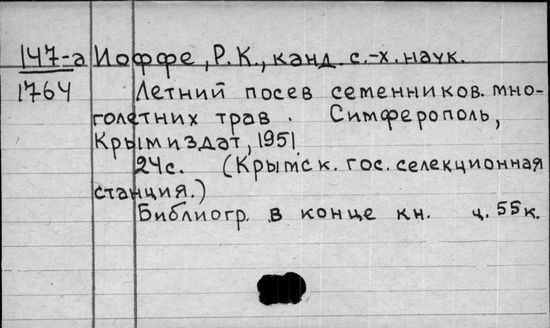 147-а Иоффе, Р.К., канд. с.-х. наук.
1764 Летний посев семенников. мно-
голетних трав. Симферополь,
Крымиздат, 1951.
24с. (Крымск. гос. селекционная
станция.)
Библиогр. в конце кн. ц. 55к.